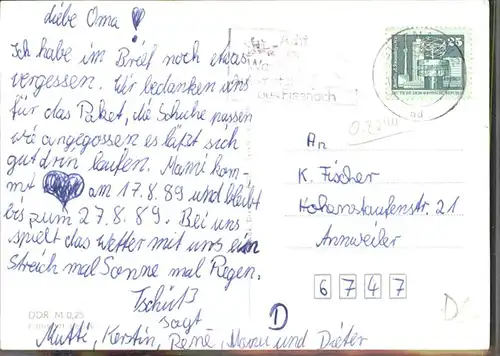 Liebe Oma!
Ich habe im Brief noch etwas
vergessen. Wir bedanken uns
für das Paket, die Schuhe passen
wie angegossen es läßt sich
gut drin laufen. Mami kom-
mt am 17.8.89 und bleibt
bis zum 27.8.89. Bei uns
spielt das Wetter mit uns ein
Streich mal Sonne mal Regen.
Tschüß
sagt
Mutti, Kerstin, René, Manu und Dieter
DDR M 0,25
Eisenach
25
An
K. Fischer
Hohenstaufenstr. 21
Annweiler
6747
D
D